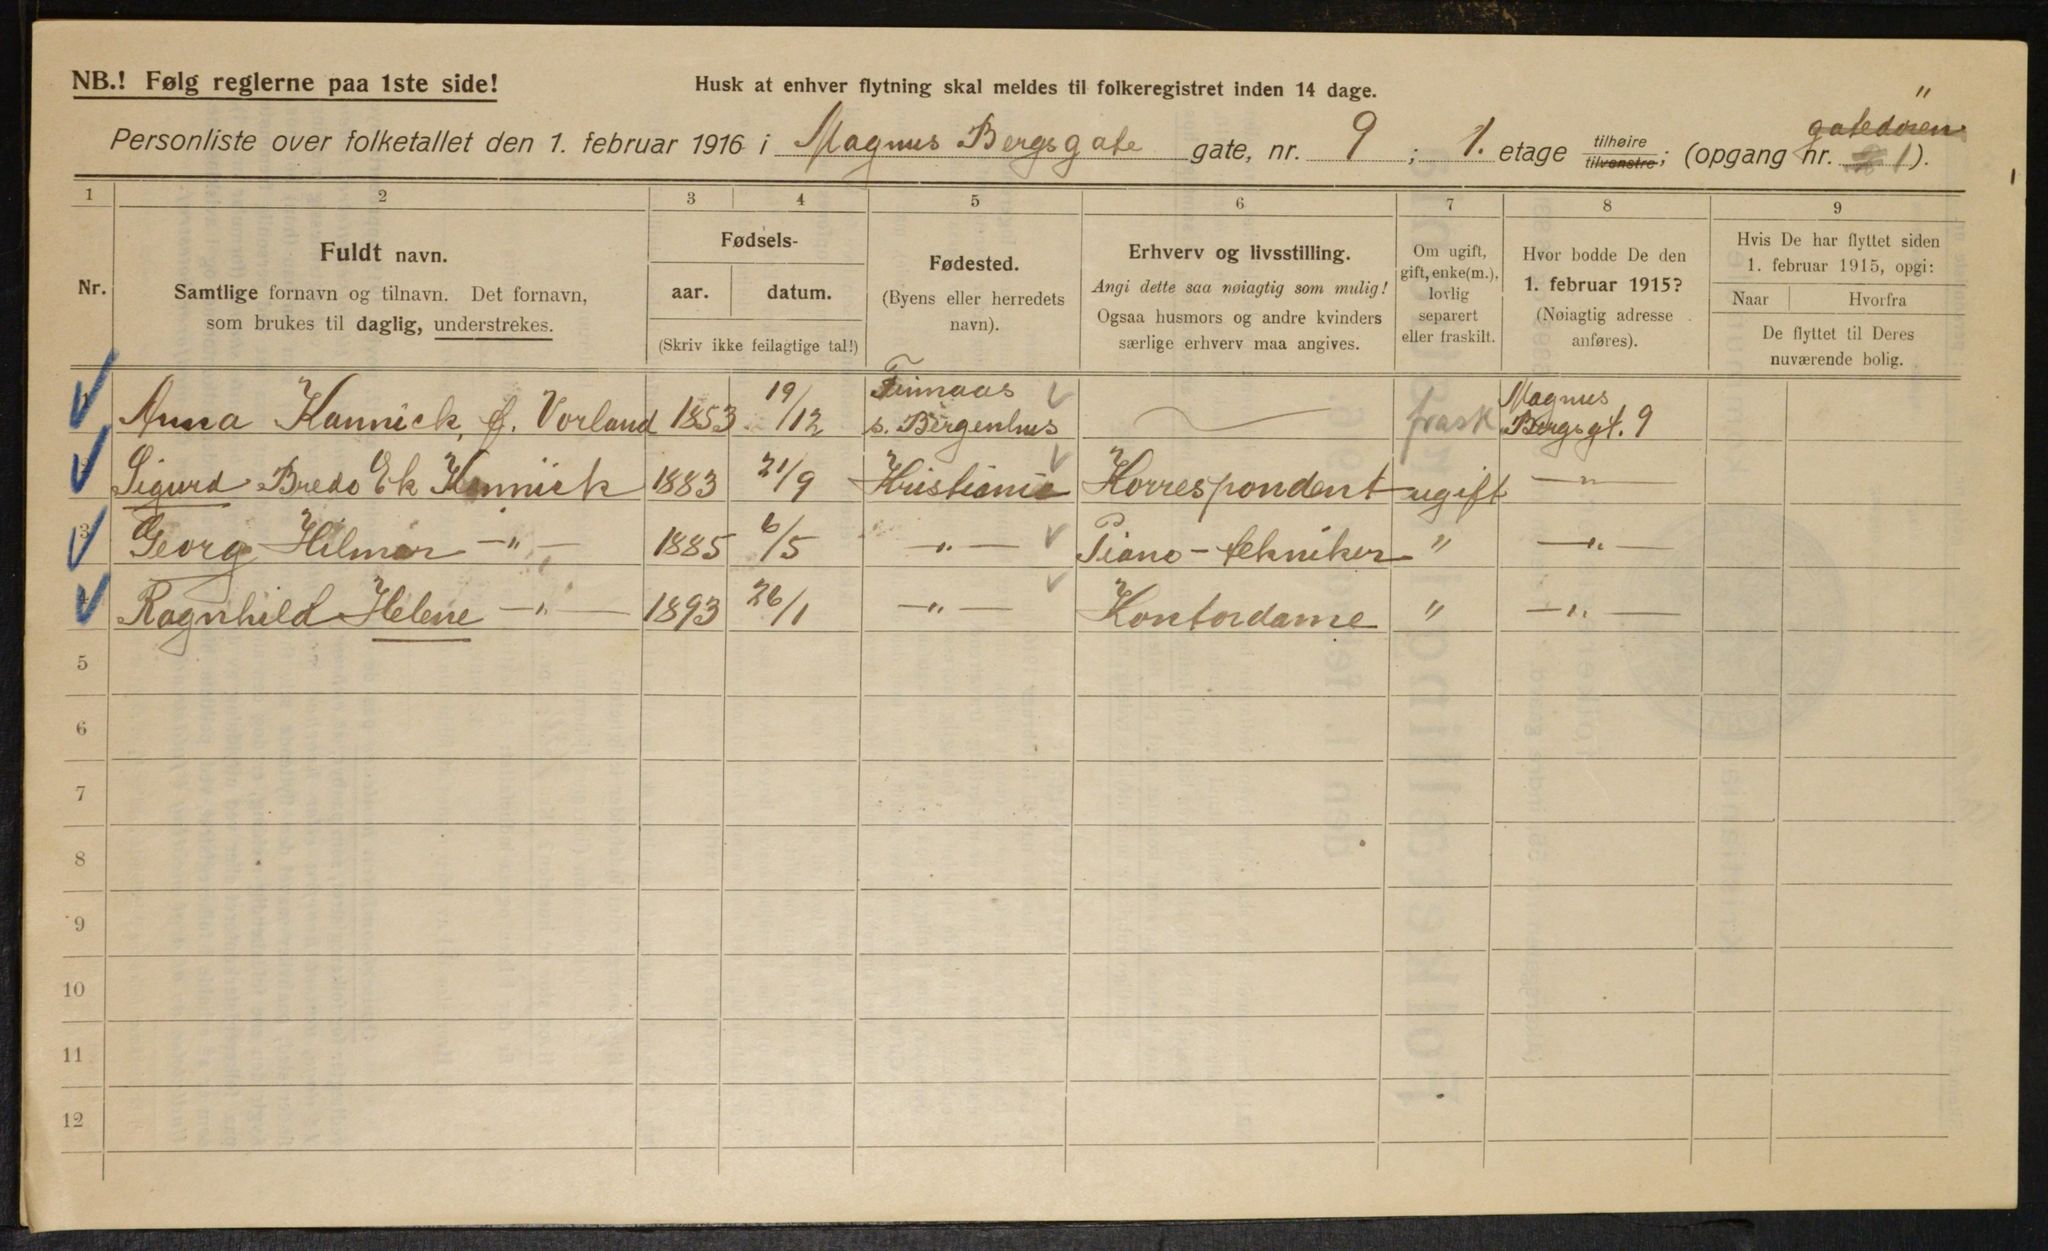 NB.! Følg reglerne paa 1ste side!
Husk at enhver flytning skal meldes til folkeregistret inden 14 dage.
Personliste over folketallet den 1. februar 1916 i Magnus Bergsgate gate, nr. 9 ; 1. etage tilhøire tilvenstre; (opgang nr. gatedøren " 1).
1 2 3 4 5 6 7 8 9
Nr.
Fuldt navn.
Samtlige fornavn og tilnavn. Det fornavn,
som brukes til daglig, understrekes.
Fødsels-
aar. datum.
(Skriv ikke feilagtige tal!)
Fødested.
(Byens eller herredets
navn).
Erhverv og livsstilling.
Angi dette saa nøiagtig som mulig!
Ogsaa husmors og andre kvinders
særlige erhverv maa angives.
Om ugift,
gift, enke(m.),
lovlig
separert
eller fraskilt.
Hvor bodde De den
1. februar 1915?
(Nøiagtig adresse
anføres).
Hvis De har flyttet siden
1. februar 1915, opgi:
Naar Hvorfra
De flyttet til Deres
nuværende bolig.
Anna Kannick, f. Vorland 1853 19/12 Finnaas s. Bergenhus frask Magnus Bergsgt. 9
Sigurd Bredo Ek Kannick 1883 21/9 Kristiania Korrespondent ugift — " —
3 Georg Hilmar — " — 1885 6/5 — " — Piano-tekniker " — " —
4 Ragnhild Helene — " — 1893 26/1 — " — Kontordame " — " —
5
6
7
8
9
10
11
12